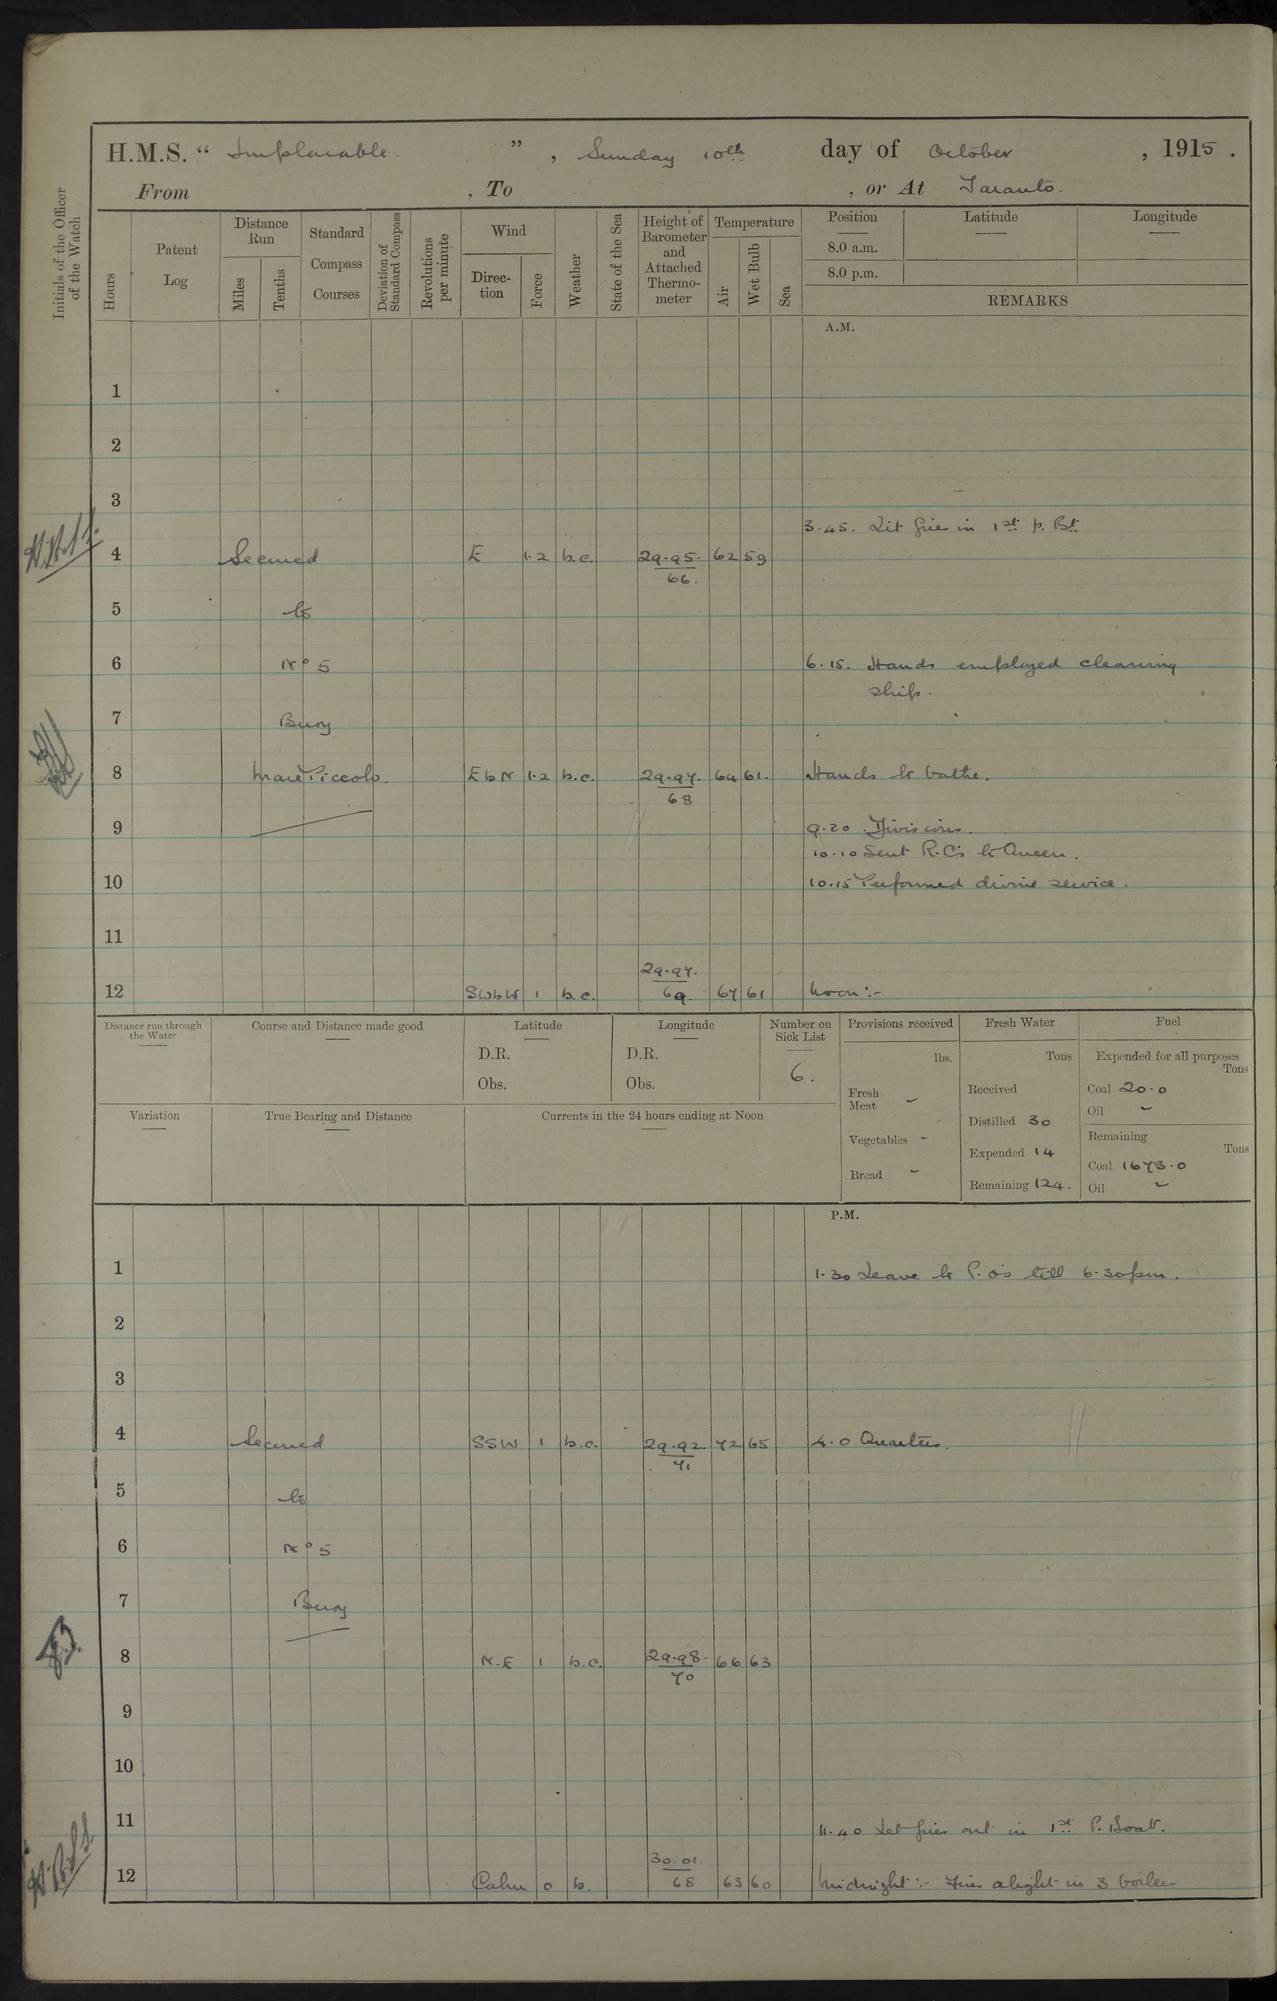 H.M.S. " Implacable. ", Sunday 10th day of October, 1915.
From , To , or At Taranto.
Initials of the Officer of the Watch
Hours
Patent Log
Distance Run
Miles
Tenths
Standard Compass Courses
Deviation of Standard Compass
Revolutions per minute
Wind
Direc-tion
Force
Weather
State of the Sea
Height of Barometer and Attached Thermo-meter
Temperature
Air
Wet Bulb
Sea
Position
Latitude
Longitude
8.0 a.m.
8.0 p.m.
REMARKS
A.M.
1
2
3
3.45. Lit fires in 1st p. Bt
4 Secured E 1.2 b.c. 29.95. 62 59
66.
5 to
6 No 5 6.15. Hands employed cleaning
ship.
7 Buoy
8 Mare Piccolo. E b N 1.2 b.c. 29.97. 64 61. Hands to bathe.
68
9 9.20. Divisions.
10.10 Sent R.C's to Queen.
10 10.15 Performed divine service.
11
29.97.
12 SWbW 1 b.c. 69. 67 61 Noon:-
Distance run through the Water
Course and Distance made good
Latitude
D.R.
Obs.
Longitude
D.R.
Obs.
Number on Sick List
6.
Provisions received
lbs.
Fresh Meat -
Vegetables -
Bread -
Fresh Water
Tons
Received
Distilled 30
Expended 14
Remaining 124.
Fuel
Expended for all purposes
Tons
Coal 20.0
Oil -
Remaining
Tons
Coal 1673.0
Oil -
Variation
True Bearing and Distance
Currents in the 24 hours ending at Noon
P.M.
1 1.30 Leave to P.O's till 6.30pm.
2
3
4 Secured SSW 1 b.c. 29.92 72 65 4.0 Quarters.
71
5 to
6 No 5
7 Buoy
8 N.E 1 b.c. 29.98. 66 63
70
9
10
11 11.40 Let fires out in 1st P. Boat.
30.01.
12 Calm 0 b. 68 63 60 Midnight:- Fires alight in 3 boilers